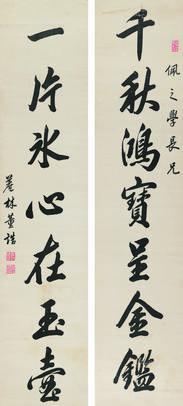 千秋鴻寶呈金鑑
佩之學長兄
一片冰心在玉壺
蔗林董誥